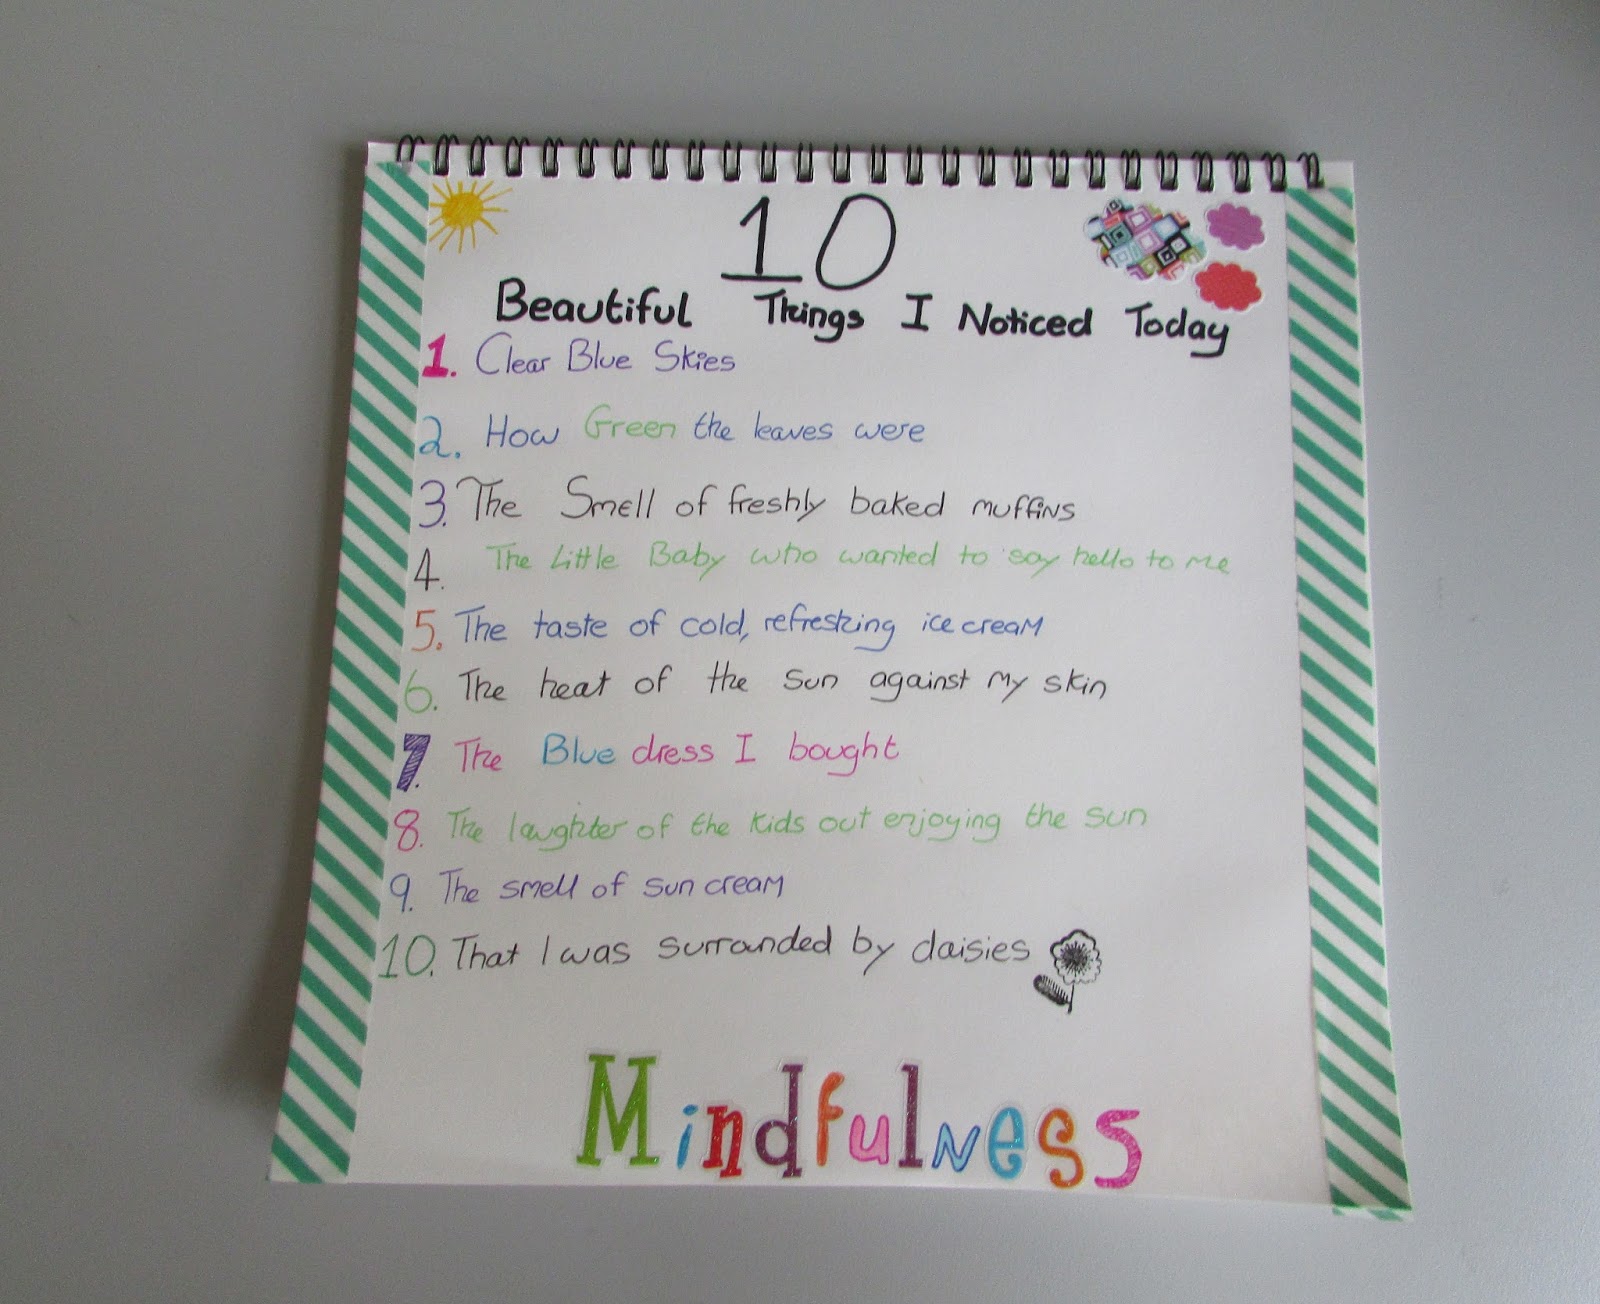 10
Beautiful Things I Noticed Today
1. Clear Blue Skies
2. How Green the leaves were
3. The Smell of freshly baked muffins
4. The Little Baby who wanted to say hello to me
5. The taste of cold, refreshing ice cream
6. The heat of the sun against my skin
7. The Blue dress I bought
8. The laughter of the kids out enjoying the sun
9. The smell of sun cream
10. That I was surranded by daisies
Mindfulness